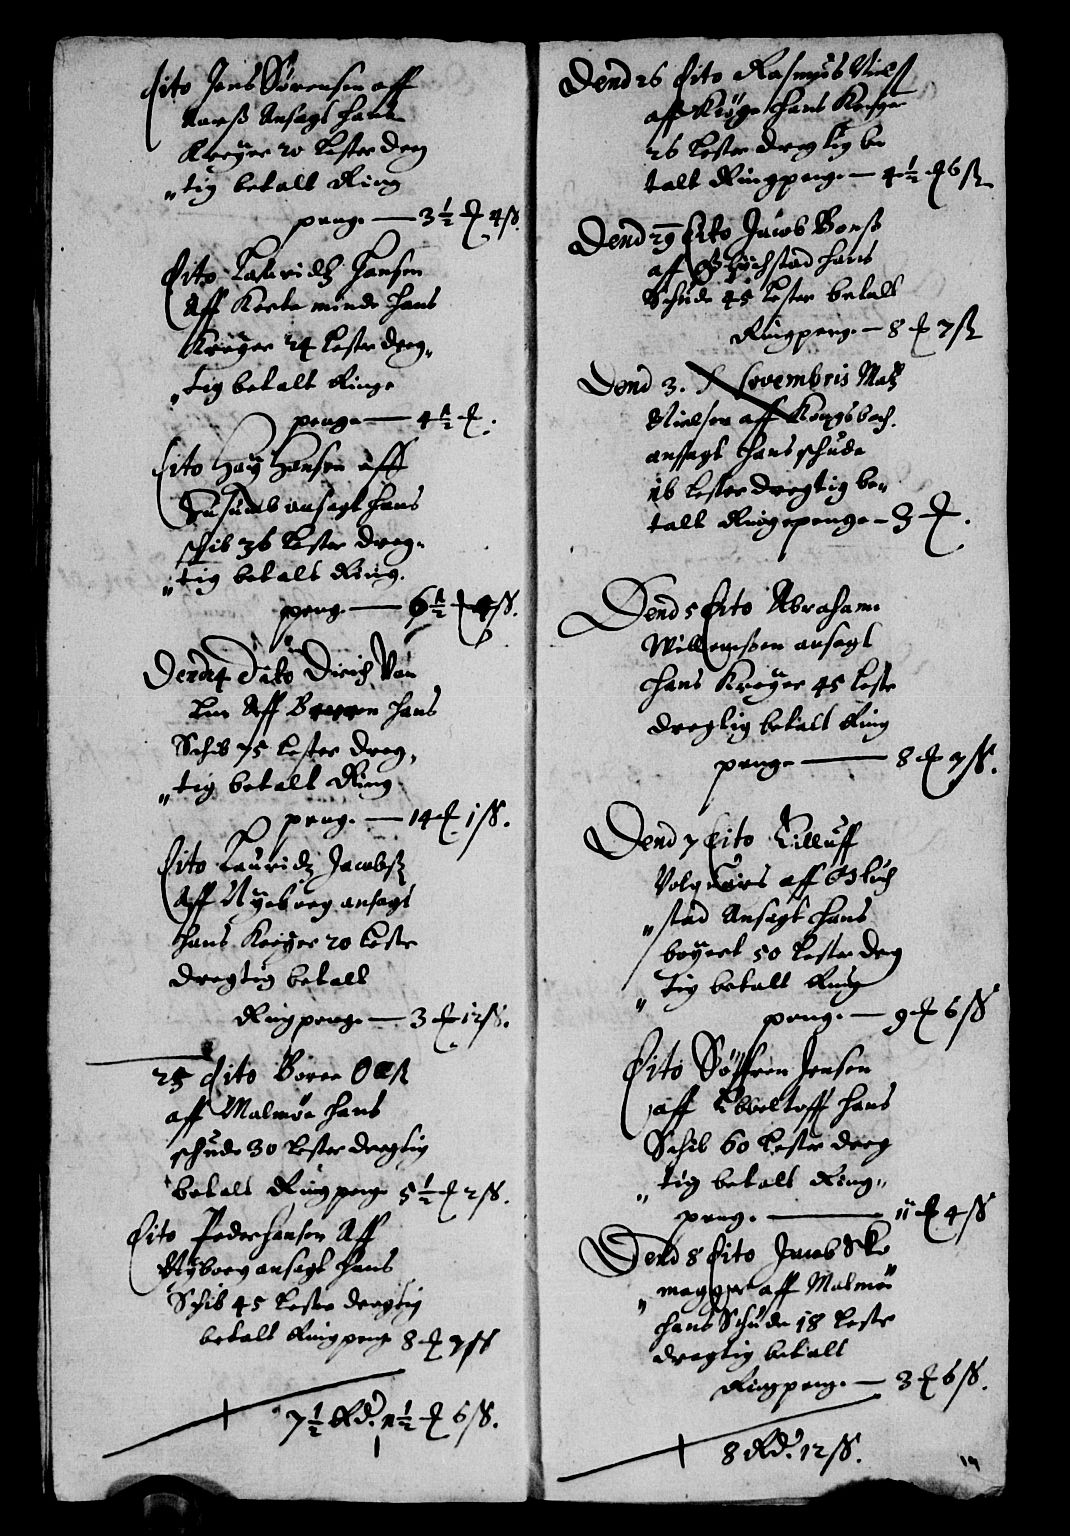 Dito Jens Sørensen aff
Aarß Ansagt hans
Kreyer 20 Lester dreg
tig betalt Ring
penge — 3½ 4 ß.
Dito Lauridtz Hansen
Aff Kerteminde hans
Kreyer 24 Lester dreg„
„tig betalt Ringe
penge — 4½
Dito Hansen aff
ansagt hans
schib 36 Lester dreg„
„tig betalt Ring.
peng — 6½ ß.
Dend 14 Dito Dirich Van
aff hans
Schib 75 Lester dreg„
„tig betalt Ring
peng. — 14 1 ß.
Dito Lauridtz Jacobß
Aff Nyeborg ansagt
hans Kreyer 20 Leste
dregtig betalt
Ringpenge — 3 12 ß.
25 Dito Boree Olß
aff Malmøe hans
schude 30 Lester dregtig
betalt Ringpenge 5½ 2 ß.
Dito Peder Hansen Aff
Nyborg ansagt hans
Schib 45 Lester dregtig
betalt Ringpeng 8 7 ß
7½ Rd. 1½ 6 ß.
Dend 26 Dito Rasmus Nielß
aff Kiøge hans Kreyer
26 Lester dregtig be
talt Ringpenge — 4½ 6 ß
Dend 29 Dito Jacob Bonß
aff hans
Schude 45 Lester betalt
Ringpenge — 8 7 ß
Dend 3. Novembris Matz
Nielsen aff Kongsbach.
ansagt hans schude
16 Lester dregtig be„
talt Ringepenge — 3
Dend 5 Dito Abraham
Willemßen ansagt
hans Kreyer 45 Leste
dregtig betalt Ring
penge — 8 7 ß.
Dend 7 Dito Tilluff
Volquars aff Glück
„stad Ansagt hans
boyert 50 Lester dreg
„tig betalt Ring
peng. — 9 6 ß
Dito Søffren Jensen
aff Ebeltoff hans
Schib 60 Lester dreg
„tig betalt Ring„
peng. — 11 4 ß
Dend 8 Dito Jacob Ske
„magger aff Malmøe
hans Schude 18 Leste
dregtig betalt
Ringpeng. — 3 6 ß.
8 Rd. 12 ß.